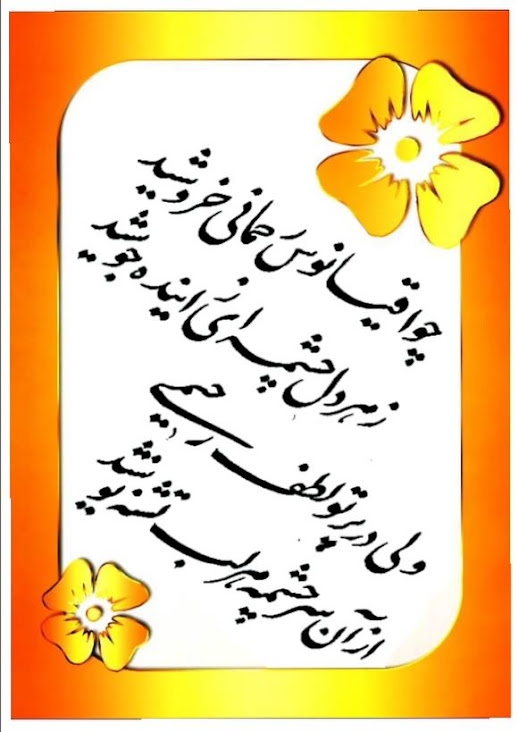 چو اقیانوس رحمانی خروشید
ز هر دل چشمه‌ای زاینده جوشید
ولی در پرتو لطف رحیمی
از آن سرچشمه هر لب تشنه نوشید